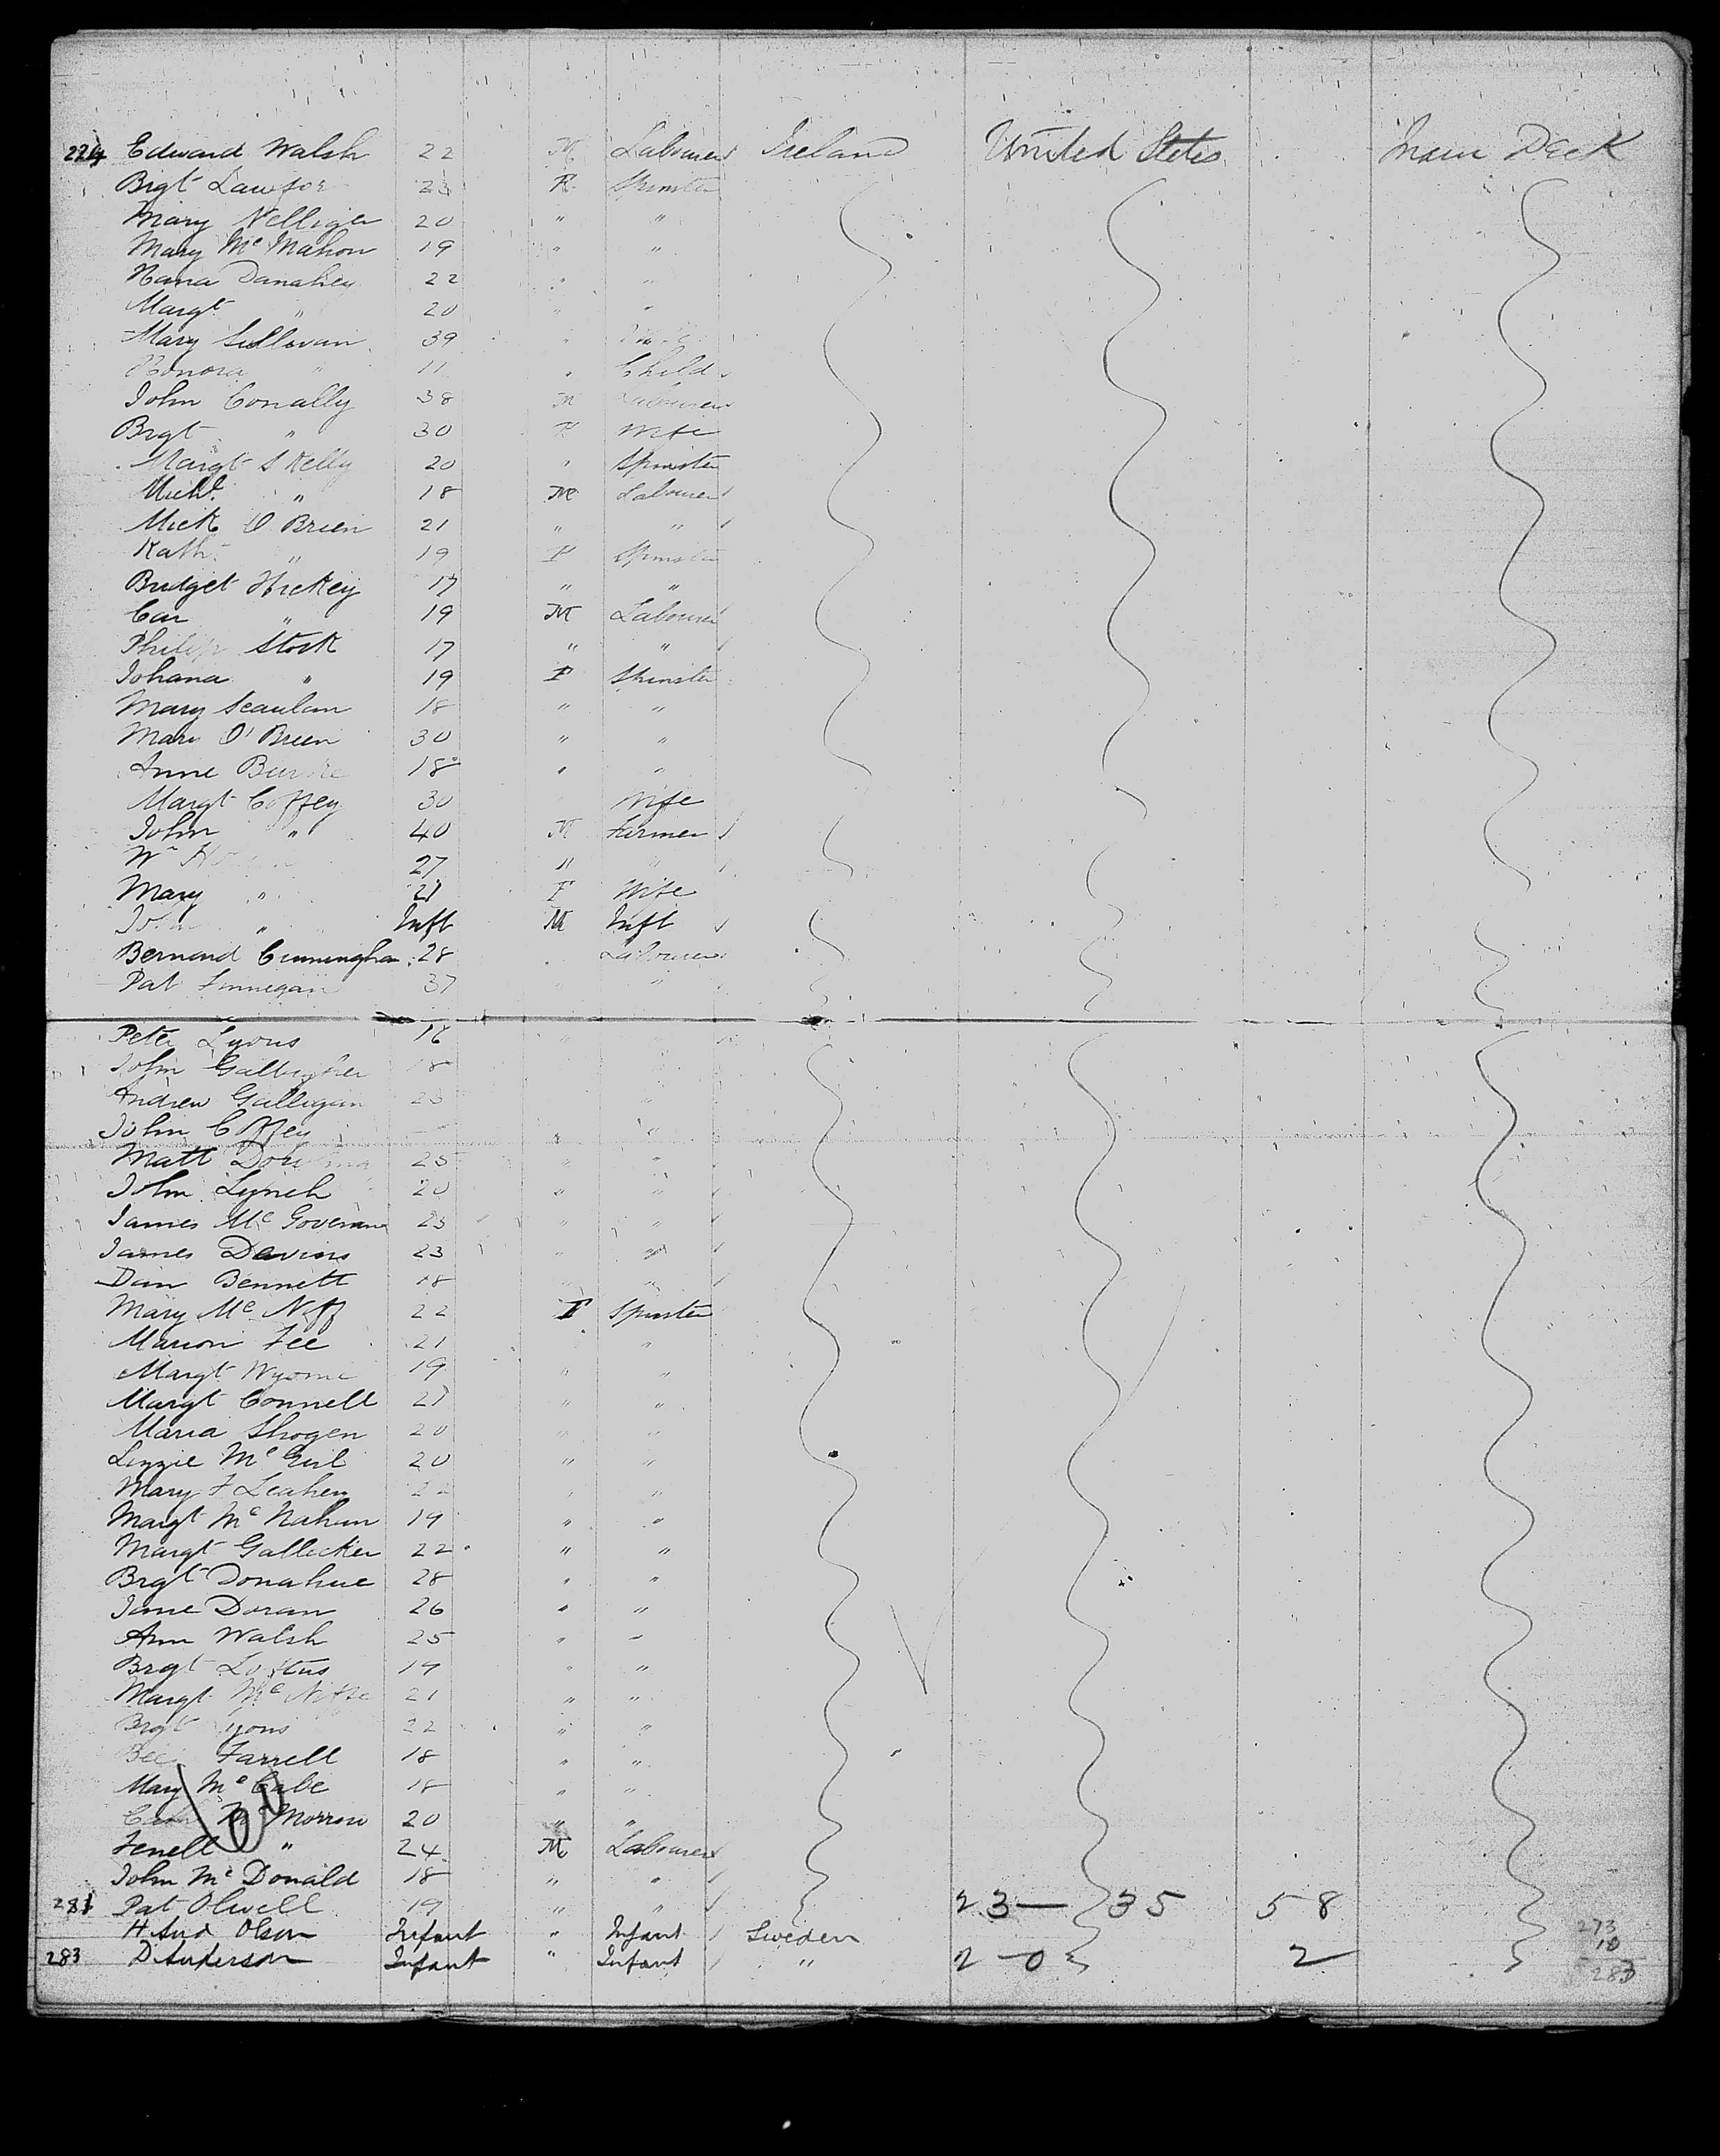 224 Edward Walsh 22 M Labourer Ireland United States Main Deck
Brgt 23 F Spinster
Mary Nelligan 20 " "
Mary Mc Mahon 19 " "
Hana Danahey 22 " "
Margt " 20 " "
Mary Sullivan 39 "
Honora " 11 " Child
John Conally 38 M Labourer
Brgt " 30 F Wife
Margt Skelly 20 " Spinster
Michl " 18 M Labourer
Mick O'Brien 21 " "
Kath " 19 F Spinster
Bridget Hickey 17 " "
" 19 M Labourer
Philip Stock 17 " "
Johana " 19 F Spinster
Mary Scanlan 18 " "
Mary O'Brien 30 " "
Anne Burke 18 " "
Margt Coffey 30 Wife
John " 40 M Farmer
Wm 27 " "
Mary " 21 F Wife
John " Inft M Inft
Bernard Cunningham 28 " Labourer
Pat Finnegan 37 "
Peter Lyons 16
John Gallagher 18
Andrew Galligan 23 "
John Coffey " "
Matt 25 " "
John Lynch 20 " "
James Mc Govern 23 " "
James Davins 23 " "
Dan Bennett 18 " "
Mary Mc Niff 22 F Spinster
Marion Fee 21 " "
Margt 19 " "
Margt Connell 21 " "
Maria Shogen 20 " "
Lizzie Mc Girl 20 " "
Mary F Leahey 22 " "
Margt Mc Nahun 19 " "
Margt Gallecker 22 " "
Brgt Donahue 28 " "
Jane Doran 26 " "
Ann Walsh 25 " "
Brgt Loftus 19 " "
Margt Mc 21 " "
Brgt Lyons 22 " "
Farrell 18 " "
Mary Mc Cabe 18 " "
Mc Morrow 20 " "
" 24 M Labourer
John Mc Donald 18 " "
281 Pat Olwell 19 " " 23 — 35 58
H. And Olson Infant " Infant Sweden 273
10
283 D. Anderson Infant " Infant " 2 - 0 2 283